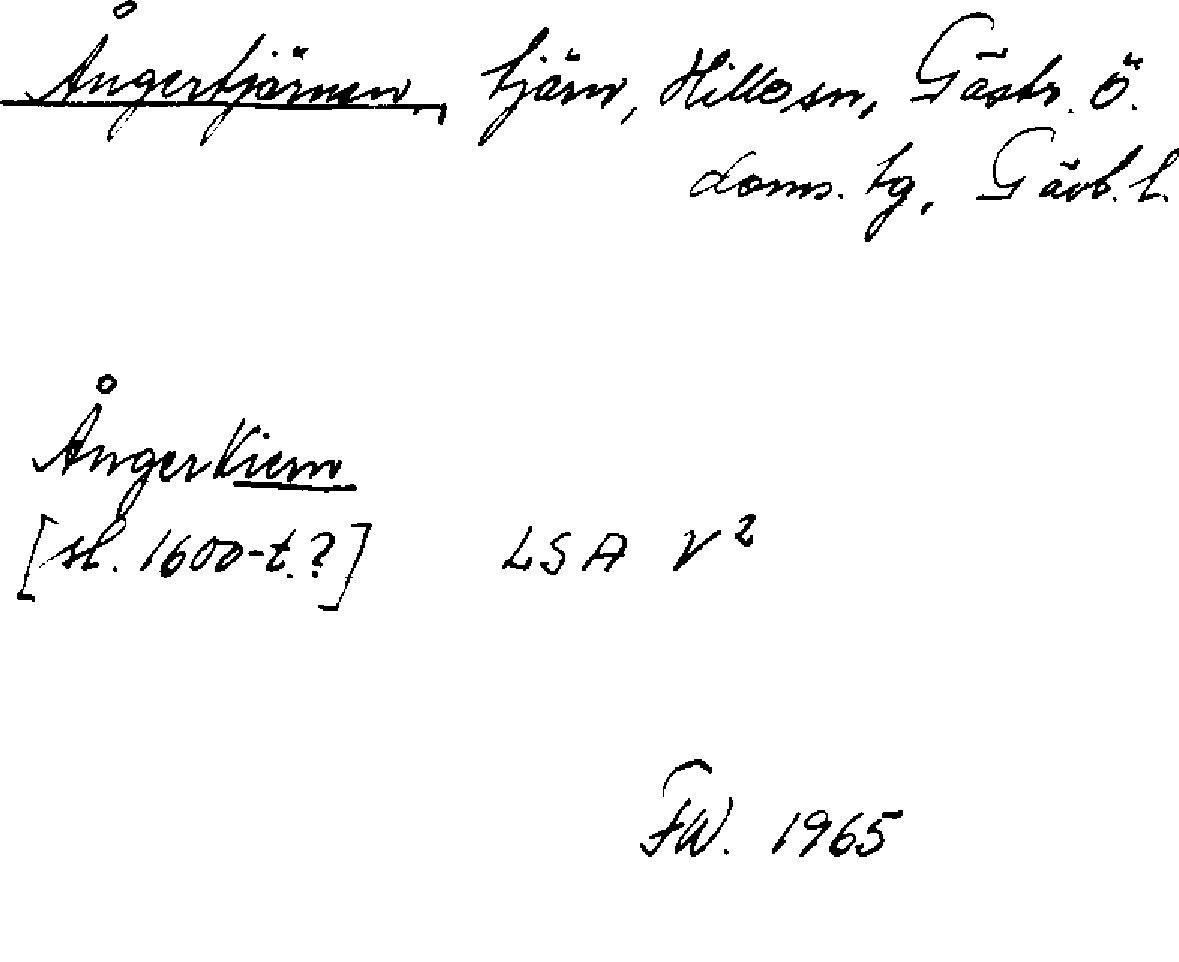 Ångertjärnen, tjärn, Hille sn, Gästr. ö.
doms. tg, Gävb. l.
Ångerkiern
[sl. 1600-t.?] LSA V²
FW. 1965